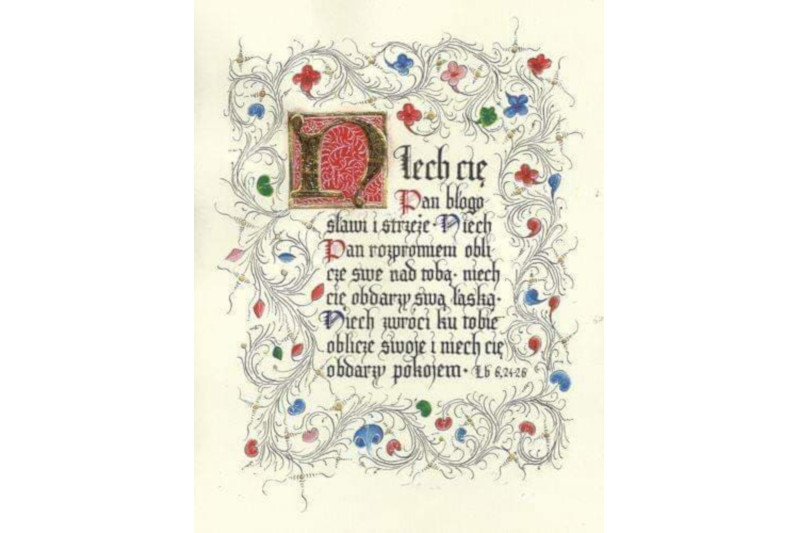 Niech cię
Pan błogo
sławi i strzeże · Niech
Pan rozpromieni obli
cze swe nad tobą · niech
cię obdarzy swą łaską ·
Niech zwróci ku tobie
oblicze swoje i niech cię
obdarzy pokojem · Lb 6,24-26